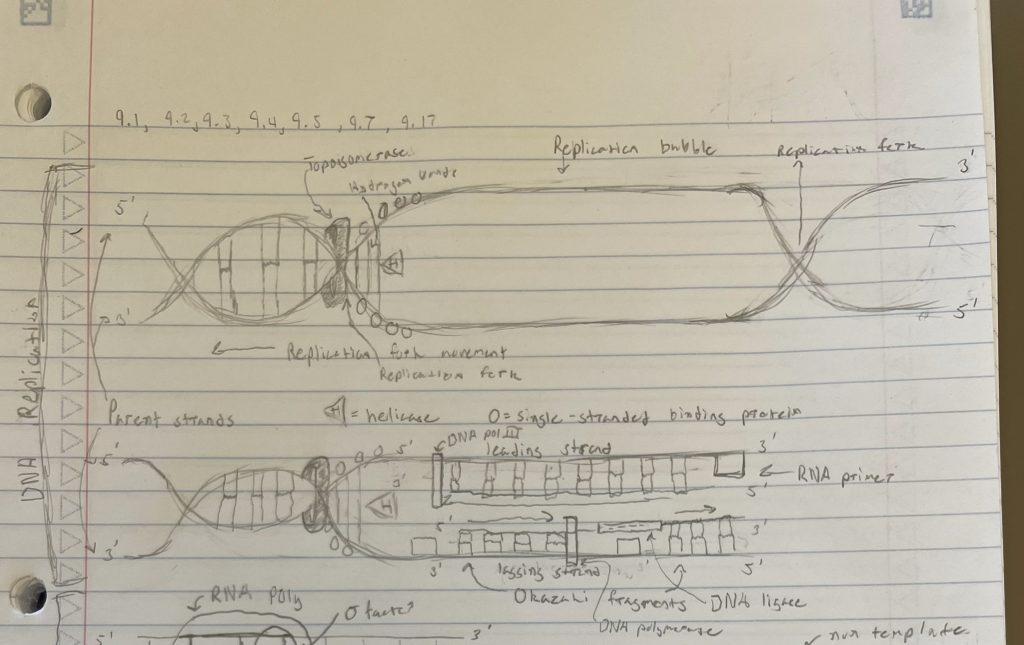 9.1, 9.2, 9.3, 9.4, 9.5, 9.7, 9.17
DNA Replication
Topoisomerase
Hydrogen bonds
Replication bubble
Replication fork
3'
5'
H
3'
5'
Replication fork movement
Replication fork
Parent strands
H = helicase
O = single-stranded binding protein
DNA pol III
leading strand
5'
5'
3'
3'
H
5'
RNA primer
5'
3'
3'
3'
3'
5'
lagging strand
Okazaki fragments
DNA ligase
DNA polymerase
RNA poly
σ factor
5'
3'
non template